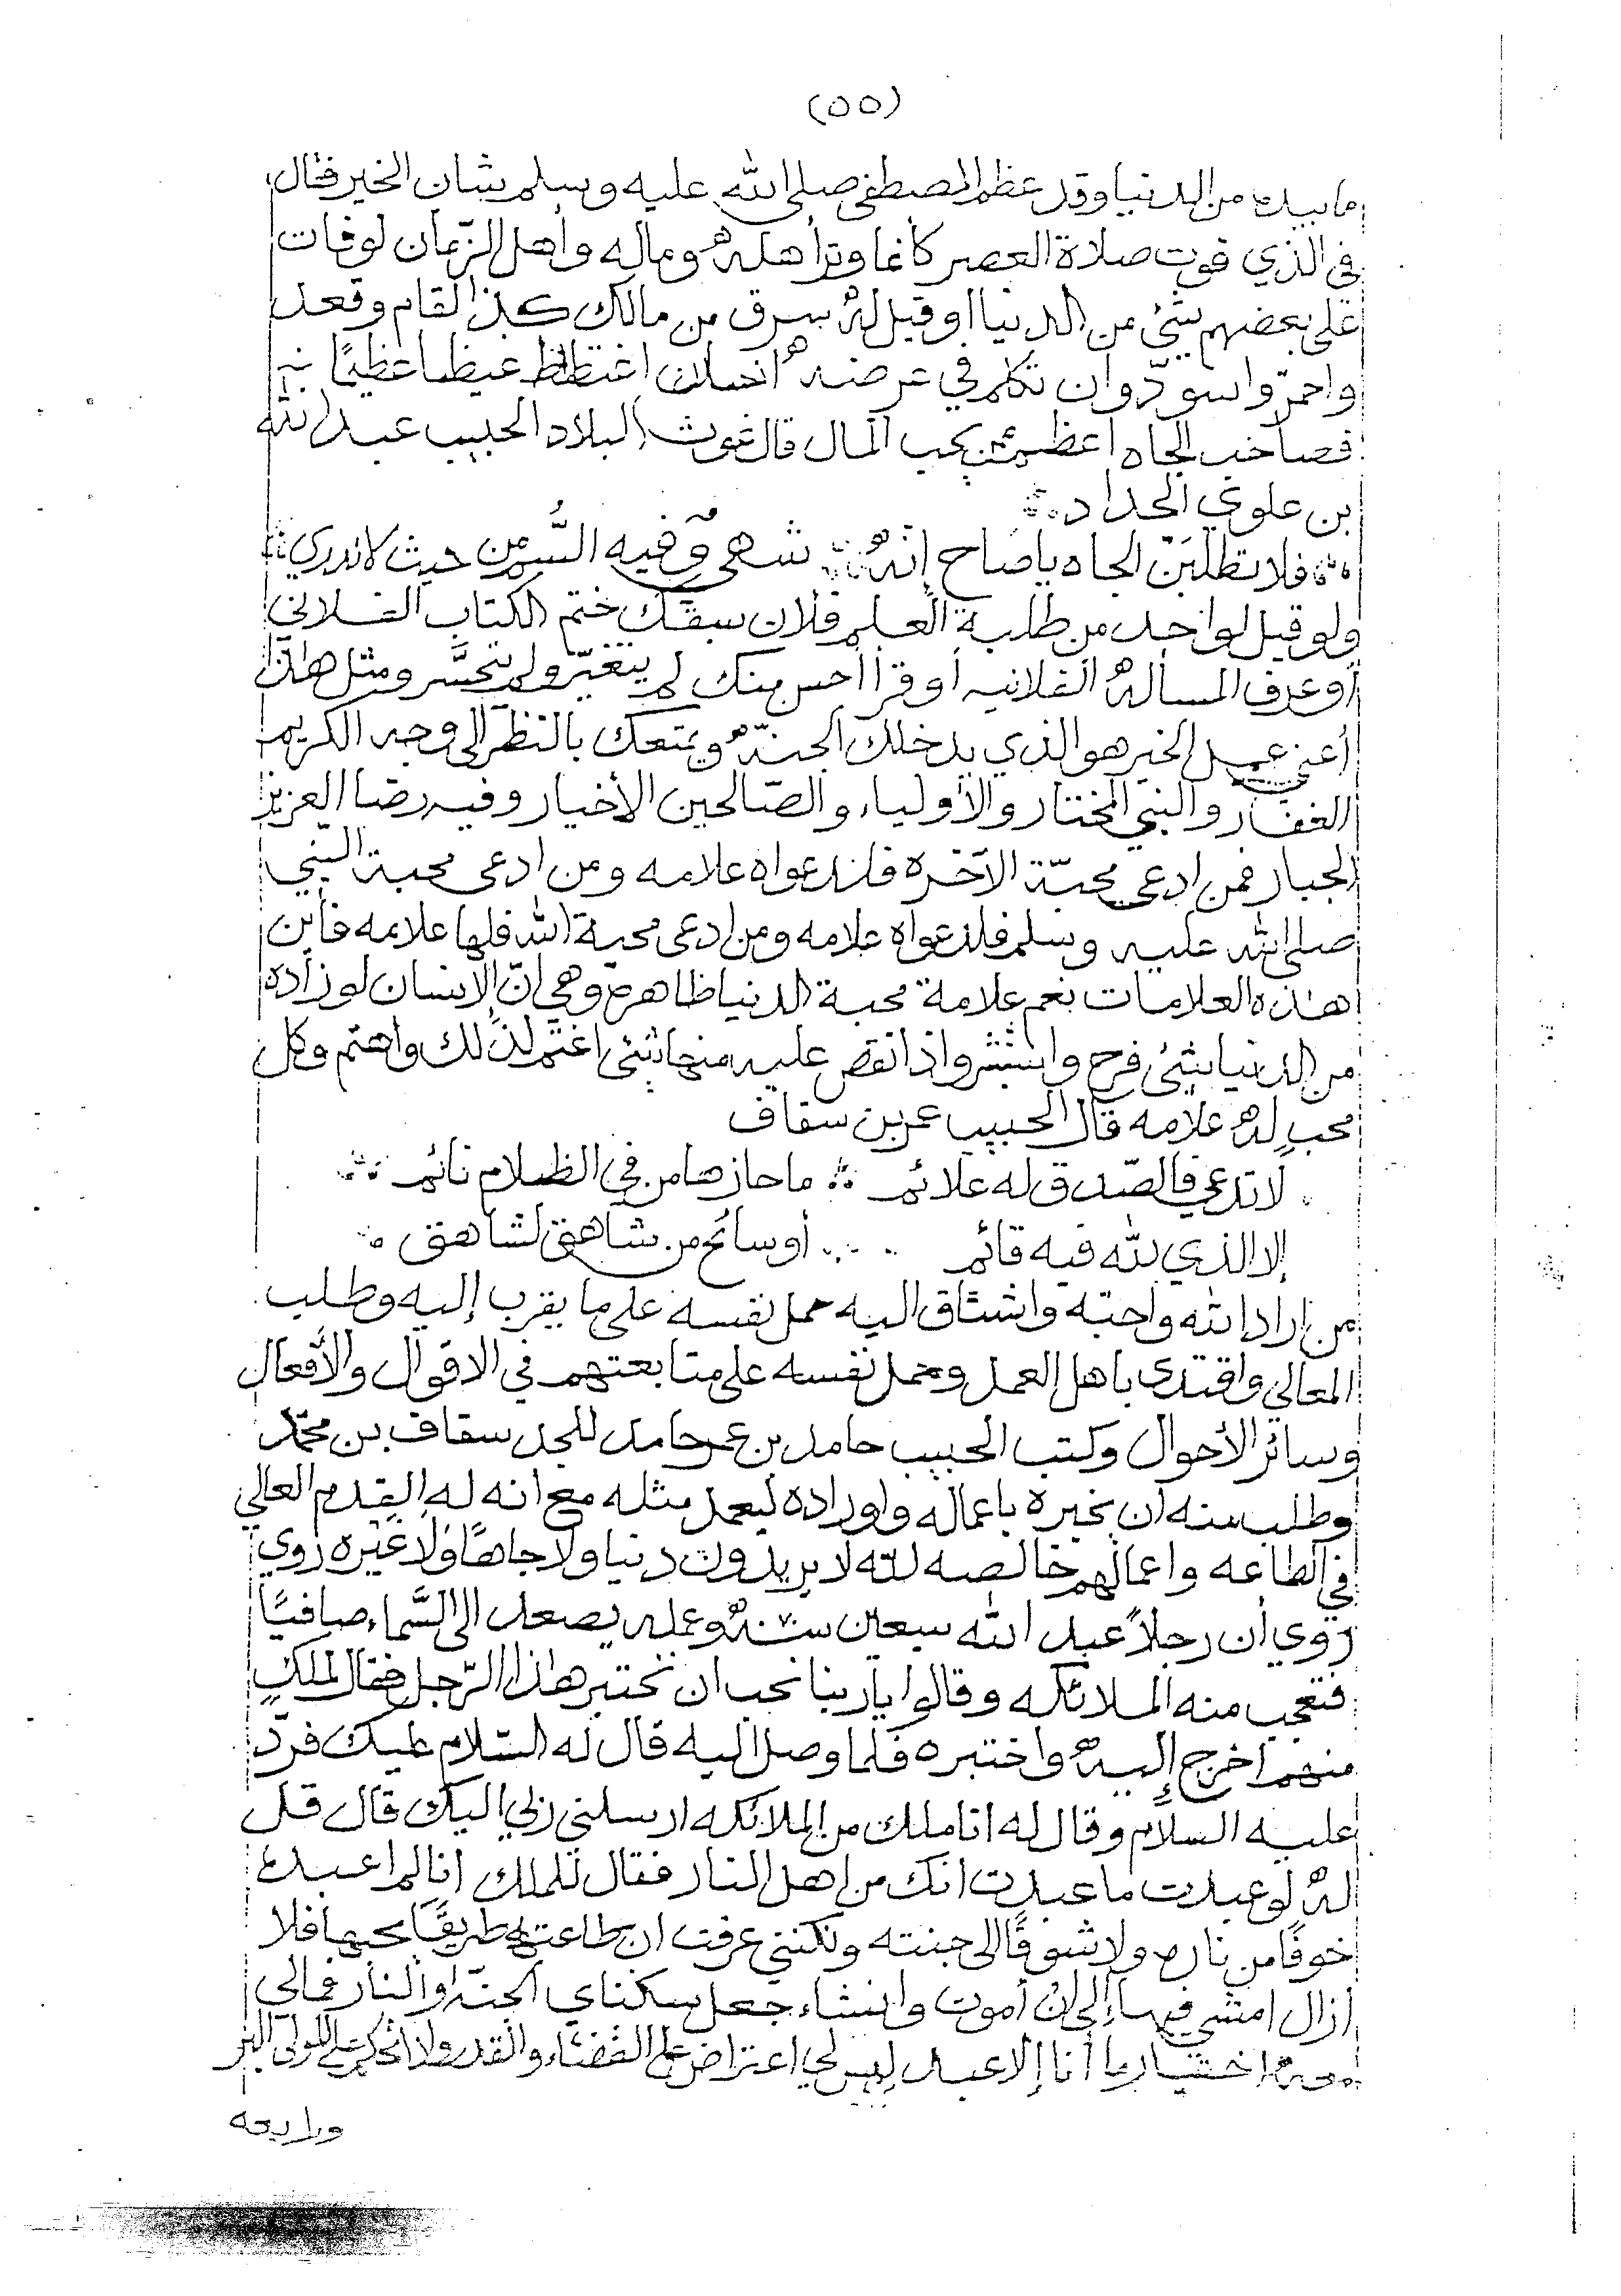 (٥٥)
ما بيده من الدنيا وقد عظم المصطفى صلى الله عليه وسلم بشان الخير فقال
في الذي فوت صلاة العصر كأنما وتر أهلهُ وماله وأهل الزمان لو فات
على بعضهم شئ من الدنيا أو قيل لهُ سرق من مالك كذا لقام وقعد
واحمرّ واسودّ وان تكلم في عرضهُ انسان اغتاظ غيظا عظيمًا
فصاحب الجاه أعظم ممن يحب المال قال غوث البلاد الحبيب عبد الله
بن علوي الحداد
فلا تطلبَنّ الجاه يا صاح إنهُ شهيّ وفيه السُّم من حيث لا تدري
ولو قيل لواحد من طلبة العلم فلان سبقك ختم الكتاب الفلاني
أو عرف المسألهُ الفلانيه أو قرأ أحسن منك لم يتغيّر ولم يتحسَّر ومثل هٰذا
أعني عمل الخير هو الذي يدخلك الجنّهُ ويمتعك بالنظر إلى وجه الكريم
الغفار والنبي المختار والأولياء والصّالحين الأخيار وفيه رضا العزيز
الجبار فمن ادعى محبّة الآخره فلدعواه علامه ومن ادعى محبة النبي
صلى الله عليه وسلم فلدعواه علامه ومن ادعى محبة الله فلها علامه فأين
هٰذه العلامات نعم علامة محبة الدنيا ظاهرة وهي انّ الانسان لو زاده
من الدنيا شئ فرح واستبشر واذا نقص عليه منها شئ اغتم لذلك واهتم وكل
محب لهُ علامه قال الحبيب عمر بن سقاف
لا تدعي فالصّدق له علائم ما حازها من في الظلام نائم
إلا الذي لله فيه قائم أو سائح من شاهق لشاهق
من اراد الله واحبّه واشتاق اليه حمل نفسه على ما يقرب إليه وطلب
المعالي واقتدى باهل العمل وحمل نفسه على متابعتهم في الاقوال والأفعال
وسائر الأحوال وكتب الحبيب حامد بن عمر حامد للجد سقاف بن محمّد
وطلب منه أن يخبره باعماله واوراده ليعمل مثله مع انه له القدم العالي
في الطاعه واعمالهم خالصه لله لا يريدون دنيا ولا جاهًا ولا غيره روي
رُوي أن رجلاً عبد الله سبعين سنهُ وعمله يصعد الى السَّماء صافيًا
فتعجب منه الملائكه وقالوا يا ربنا نحب ان نختبر هٰذا الرّجل فقال لملكٍ
منهم اخرج إليهُ واختبره فلما وصل اليه قال له السّلام عليك فردّ
عليه السلام وقال له انا ملك من الملائكه ارسلني ربي اليك قال قل
لهُ لو عبدت ما عبدت انك من اهل النار فقال للملك انا لم اعبده
خوفًا من ناره ولا شوقًا الى جنته ولكنني عرفت ان طاعته طريقًا يحبها فلا
أزال امشي فيها إلى انْ أموت وان شاء جعل سكناي الجنّه او النار فما لي
معهُ اختيار ما أنا إلا عبد ليس لي اعتراض على القضاء والقدر ولا اتحكم على المولى البر
ورابعه